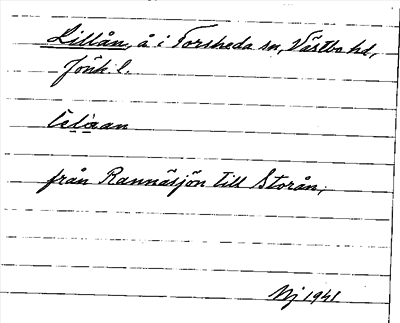 Lillån, å i Forsheda sn, Västbo hd,
Jönk l.
från Rannäsjön till Storån,
Nj 1941